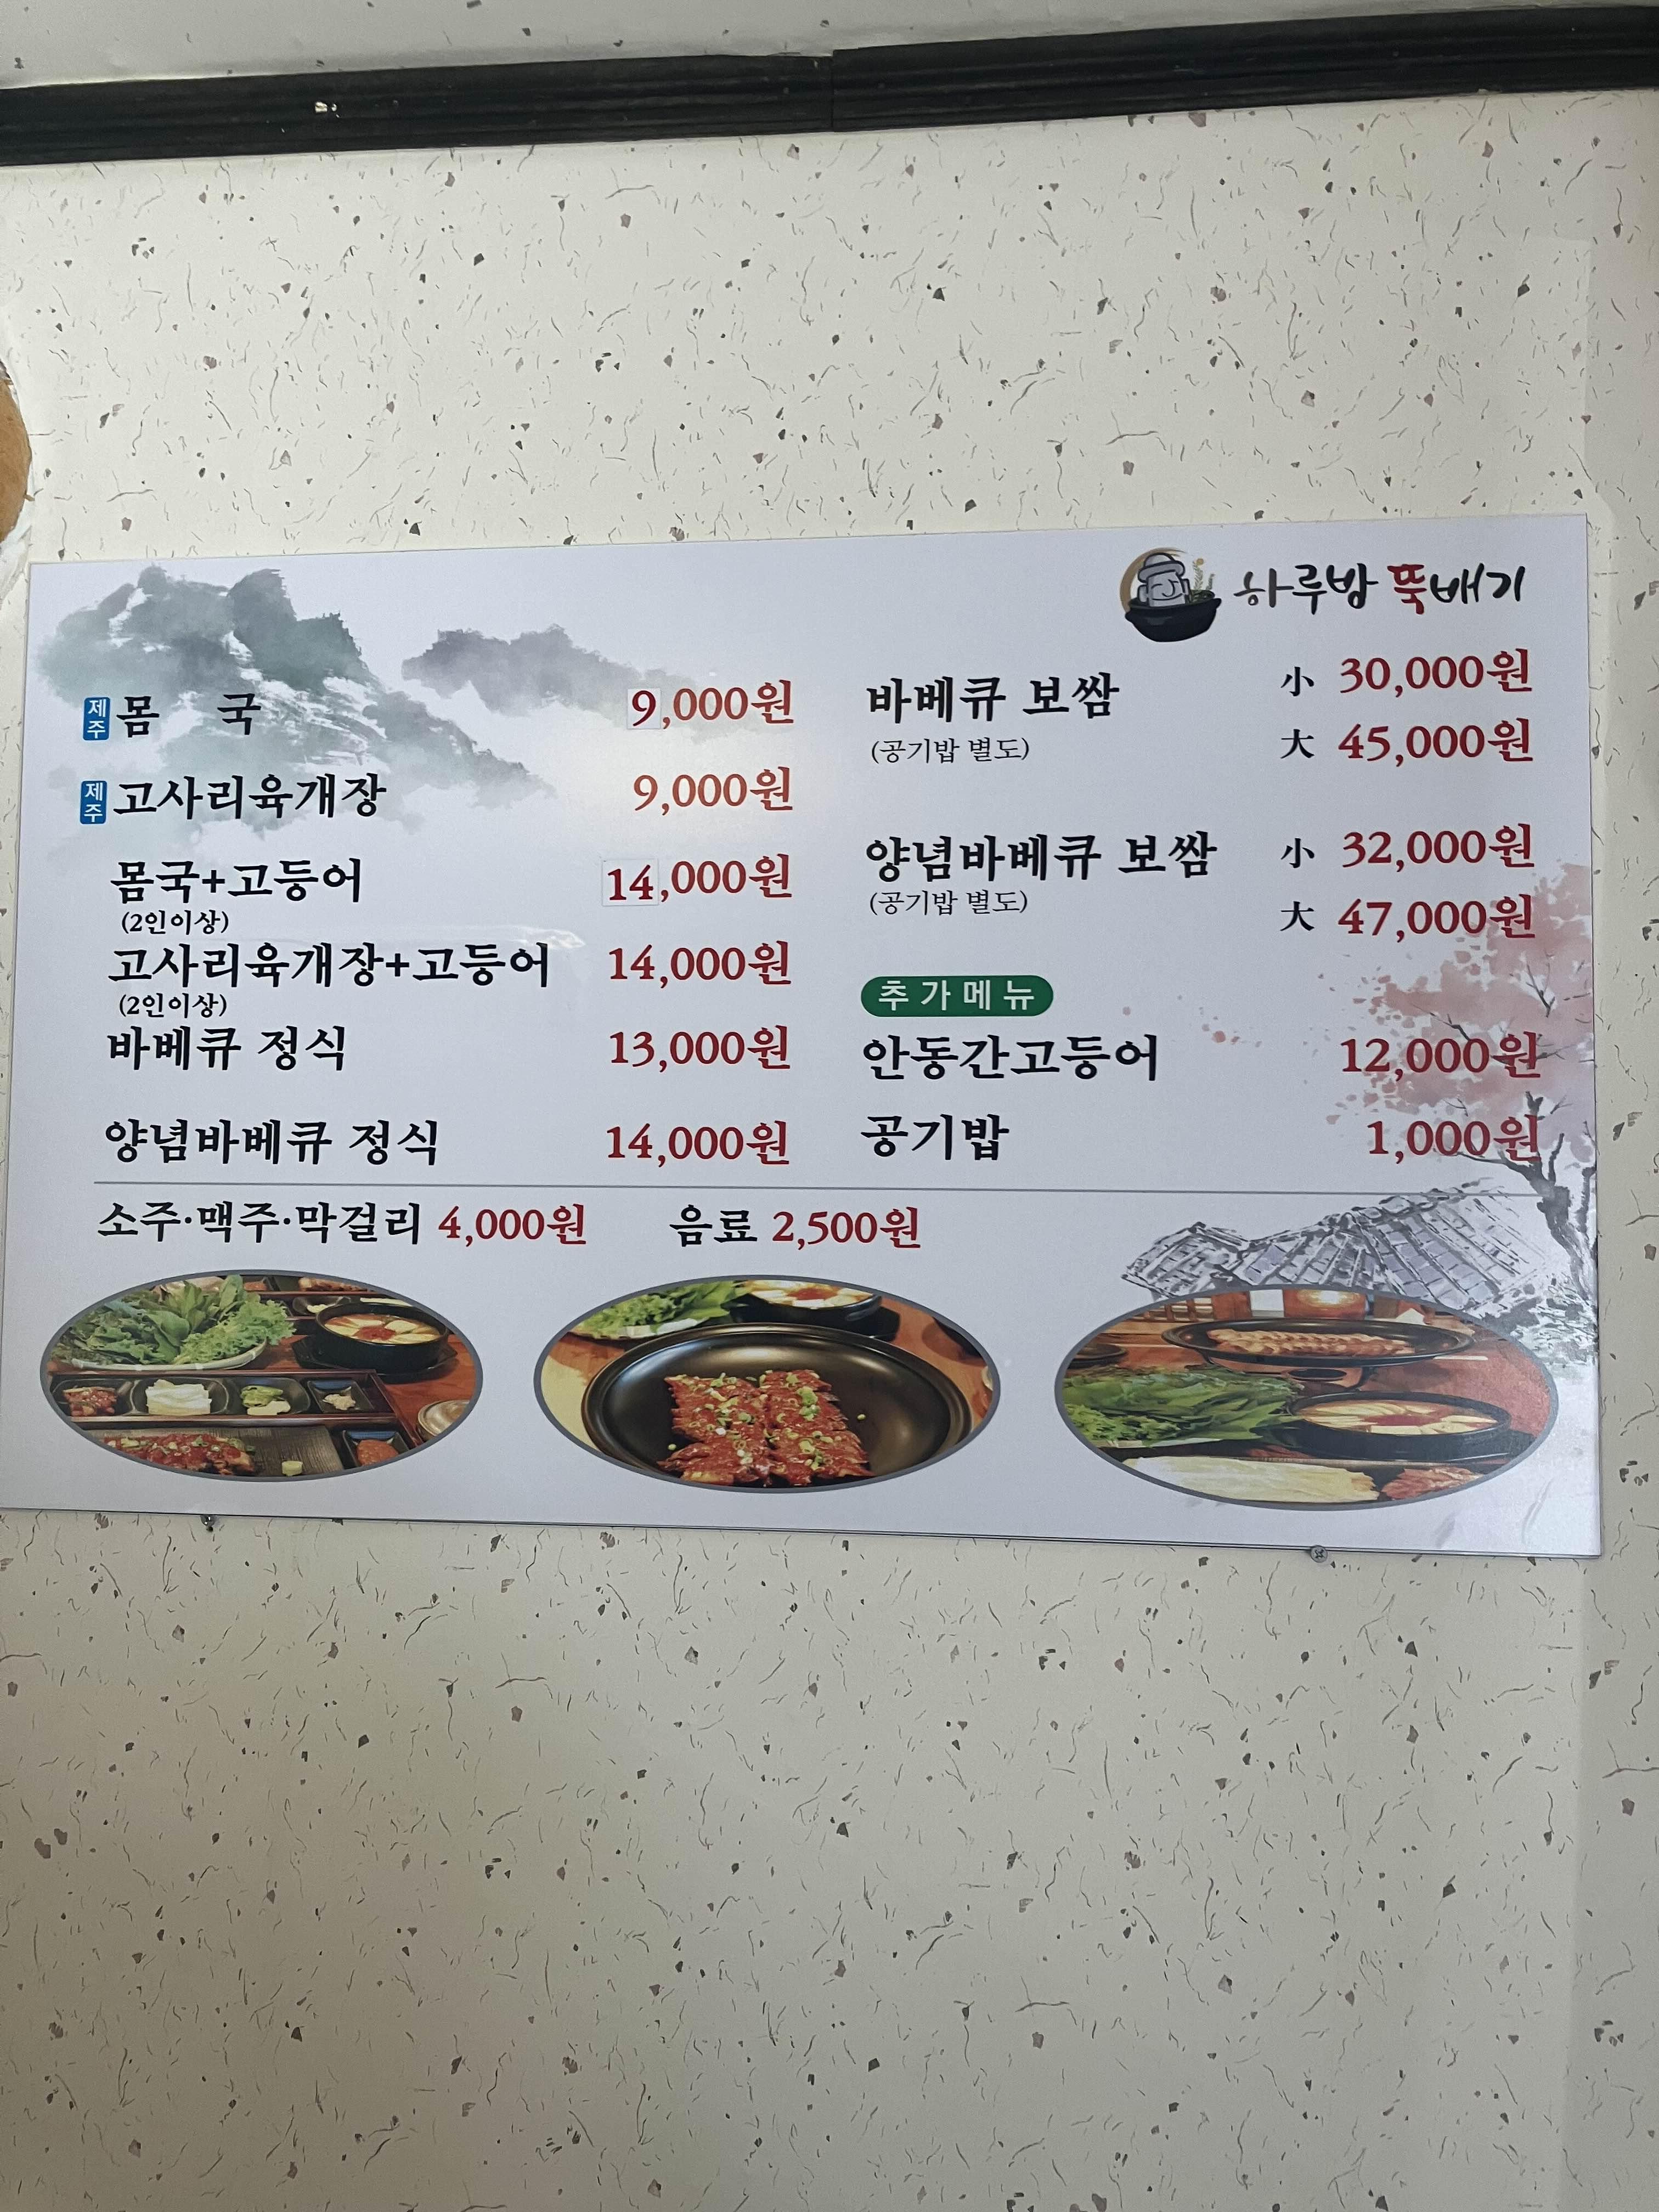 하루방 뚝배기
제주 몸 국 9,000원
제주 고사리육개장 9,000원
몸국+고등어 14,000원
(2인이상)
고사리육개장+고등어 14,000원
(2인이상)
바베큐 정식 13,000원
양념바베큐 정식 14,000원
바베큐 보쌈 小 30,000원
(공기밥 별도) 大 45,000원
양념바베큐 보쌈 小 32,000원
(공기밥 별도) 大 47,000원
추가메뉴
안동간고등어 12,000원
공기밥 1,000원
소주·맥주·막걸리 4,000원 음료 2,500원